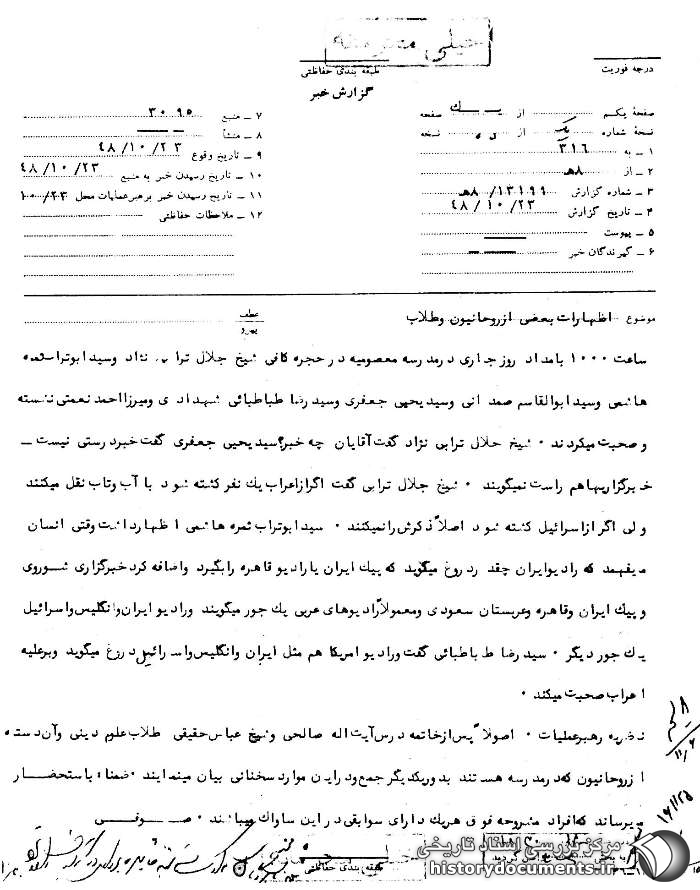 خیلی محرمانه
طبقه بندی حفاظتی
درجه فوریت
گزارش خبر
صفحهٔ یکم از یک صفحه
نسخهٔ شماره یک از نسخه
۱ ـ به ۳۱۶
۲ ـ از ۸ هـ
۳ ـ شماره گزارش ۱۳۱۹۹/ ۸هـ
۴ ـ تاریخ گزارش ۴۸/۱۰/۲۳
۵ ـ پیوست
۶ ـ گیرندگان خبر
۷ ـ منبع ۳۰۹۵
۸ ـ منشأ
۹ ـ تاریخ وقوع ۴۸/۱۰/۲۳
۱۰ ـ تاریخ رسیدن خبر به منبع ۴۸/۱۰/۲۳
۱۱ ـ تاریخ رسیدن خبر برهبر عملیات محل
۱۲ ـ ملاحظات حفاظتی
موضوع اظهارات بعضی از روحانیون و طلاب
عطف
پیرو
ساعت ۱۰۰۰ بامداد روز جاری در مدرسه معصومیه در حجره کافی شیخ جلال ترابی نژاد و سید ابوتراب ثمره
هاشمی و سید ابوالقاسم صمدانی و سید یحیی جعفری و سید رضا طباطبائی شهدادی و میرزا احمد نعمتی نشسته
و صحبت میکردند ۰ شیخ جلال ترابی نژاد گفت آقایان چه خبر؟ سید یحیی جعفری گفت خبر درستی نیست ـ
خبرگزاریها هم راست نمیگویند ۰ شیخ جلال ترابی گفت اگر از اعراب یك نفر کشته شود با آب و تاب نقل میکنند
ولی اگر از اسرائیل کشته شود اصلاً ذکرش را نمیکنند ۰ سید ابوتراب ثمره هاشمی اظهار داشت وقتی انسان
میفهمد که رادیو ایران چقدر دروغ میگوید که پیك ایران یا رادیو قاهره را بگیرد واضافه کرد خبرگزاری شوروی
و پیك ایران وقاهره وعربستان سعودی ومعمولاً رادیوهای عربی یك جور میگویند ورادیو ایران وانگلیس واسرائیل
یك جور دیگر ۰ سید رضا طباطبائی گفت ورادیو امریکا هم مثل ایران وانگلیس واسرائیل دروغ میگوید وبرعلیه
اعراب صحبت میکند ۰
نظریه رهبرعملیات ۰ اصولاً پس از خاتمه درس آیت اله صالحی وشیخ عباس حقیقی طلاب علوم دینی وآن دسته
از روحانیون که در مدرسه هستند بدور یکدیگر جمع ودر این موارد سخنانی بیان مینمایند ۰ ضمناً باستحضار
میرساند که افراد مشروحه فوق هریك دارای سوابقی در این ساواك میباشند ۰ صوفی
طبقه بندی حفاظتی
مرکز بررسی اسناد تاریخی
historydocuments.ir